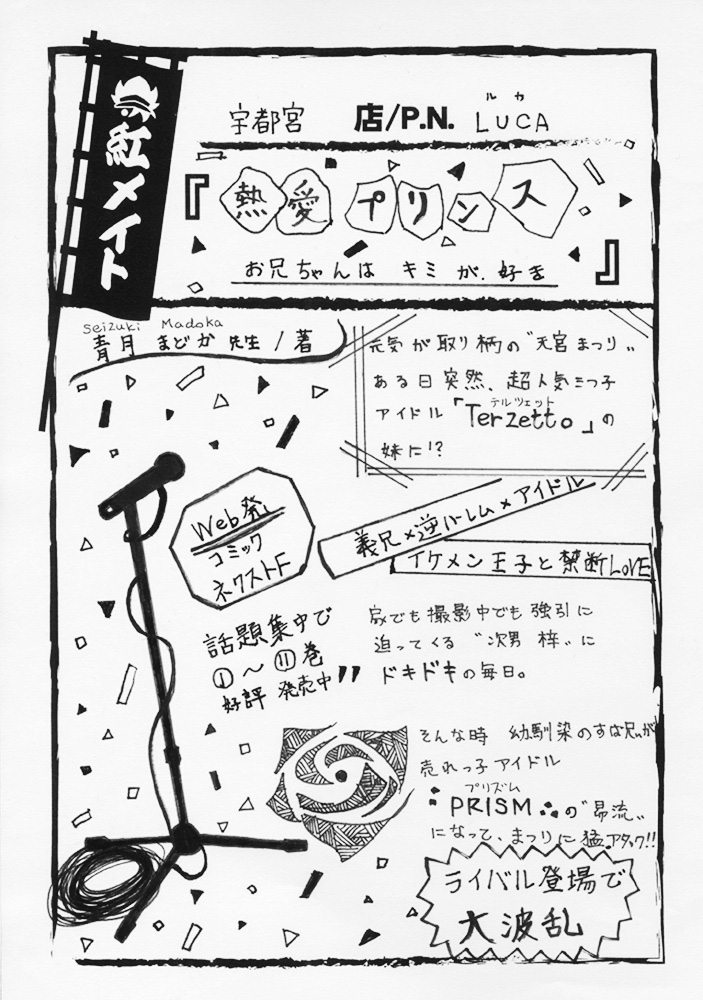 紅メイト
宇都宮 店/P.N. LUCA
ルカ
『熱愛プリンス
お兄ちゃんは キミが.好き』
Seizuki Madoka
青月 まどか 先生/著
元気が取り柄の〝天宮まつり〟
ある日突然、超人気三つ子
テルツェット
アイドル「Terzetto」の
妹に!?
Web発
コミック
ネクストF
義兄×逆ハーレム×アイドル
イケメン王子と禁断LOVE
話題集中で
①〜⑪巻
好評 発売中〃
家でも撮影中でも強引に
迫ってくる〝次男 梓〟に
ドキドキの毎日。
そんな時 幼馴染のすな兄が
売れっ子アイドル
プリズム
PRISMの〝易流〟
になって、まつりに猛アタック!!
ライバル登場で
大波乱